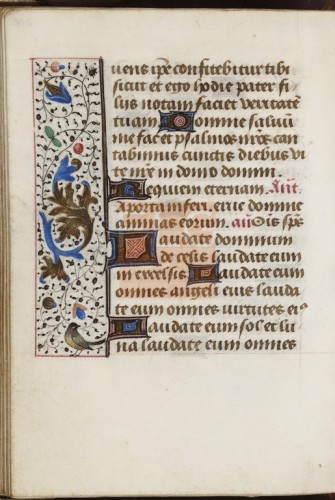 uens ip̄e confitebitur tibi
sicut et ego hodie pater fi
lijs notam faciet veritatē
tuam Domine saluū
me fac et psalmos nr̄os can
tabimus cunctis diebus vi
te nr̄e in domo domini.
Requiem eternam. Ant̄.
A porta inferi. erue domine
animas eorum. an̄ Oīs sp̄s
Laudate dominum
de celis laudate eum
in excelsis Laudate eum
omnes angeli eius lauda
te eum omnes virtutes eiꝰ
Laudate eum sol et lu
na laudate eum omnes